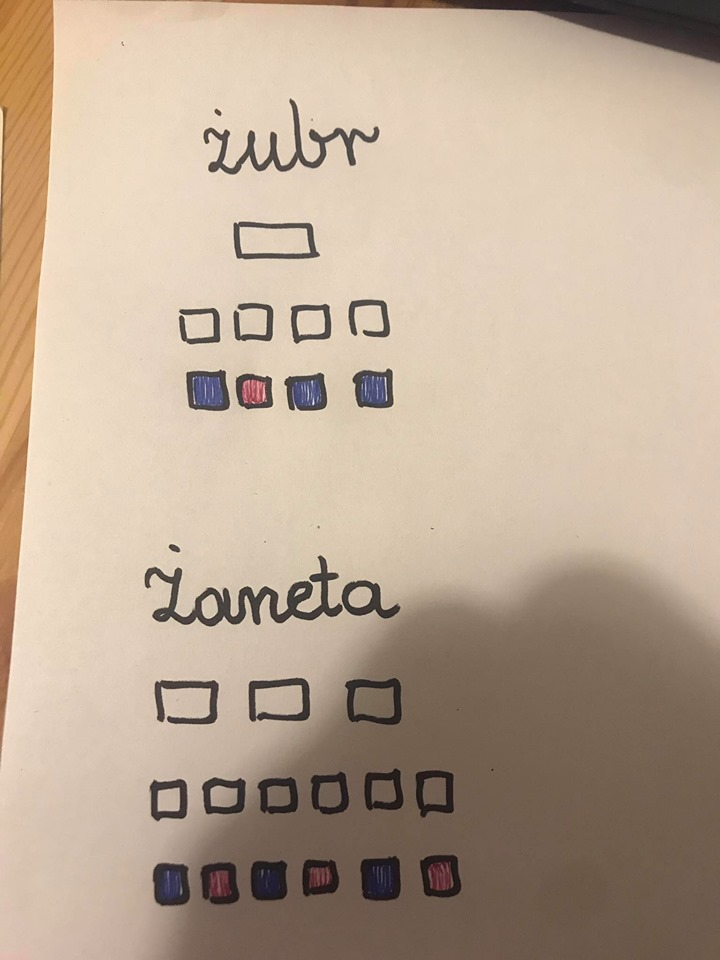 żubr
Żaneta